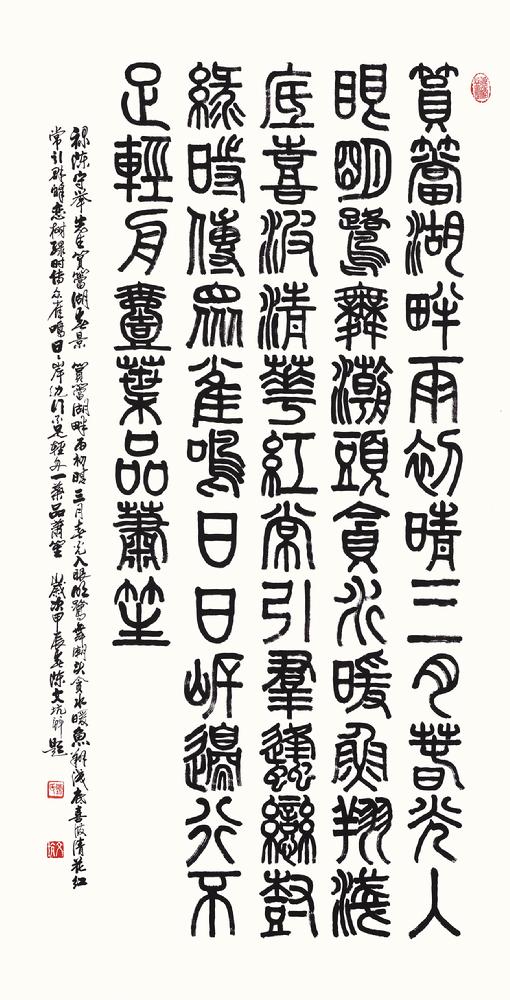 篔簹湖畔雨初晴三月春光入
眼明鷺舞潮頭貪水暖魚翔淺
底喜波清華紅常引羣蜂戀樹
綠時傳眾雀鳴日日岸邊行不
足輕舟壹葉品蕭笙
祿陳守舉先生篔簹湖春景 篔簹湖畔雨初晴三月春光入眼明鷺舞潮頭貪水暖魚翔淺底喜波清花紅
常引群蜂戀樹綠時传众雀鳴日日岸边行不足輕舟一葉品蕭笙 歲次甲辰春陈文坑題